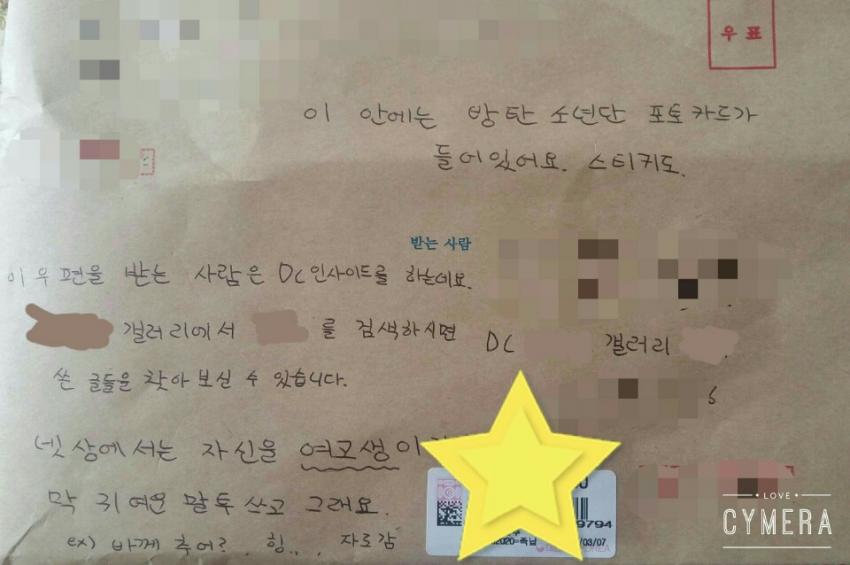 우 표
이 안에는 방탄소년단 포토카드가
들어있어요. 스티커도.
받는 사람
이 우편을 받는 사람은 DC인사이드를 하는데요.
갤러리에서 를 검색하시면
DC 갤러리
쓴 글들을 찾아 보실 수 있습니다.
넷상에서는 자신을 여고생이
막 귀여운 말투 쓰고 그래요.
ex) 바께 추어?, 힝..,
9794
/03/07
LOVE
CYMERA